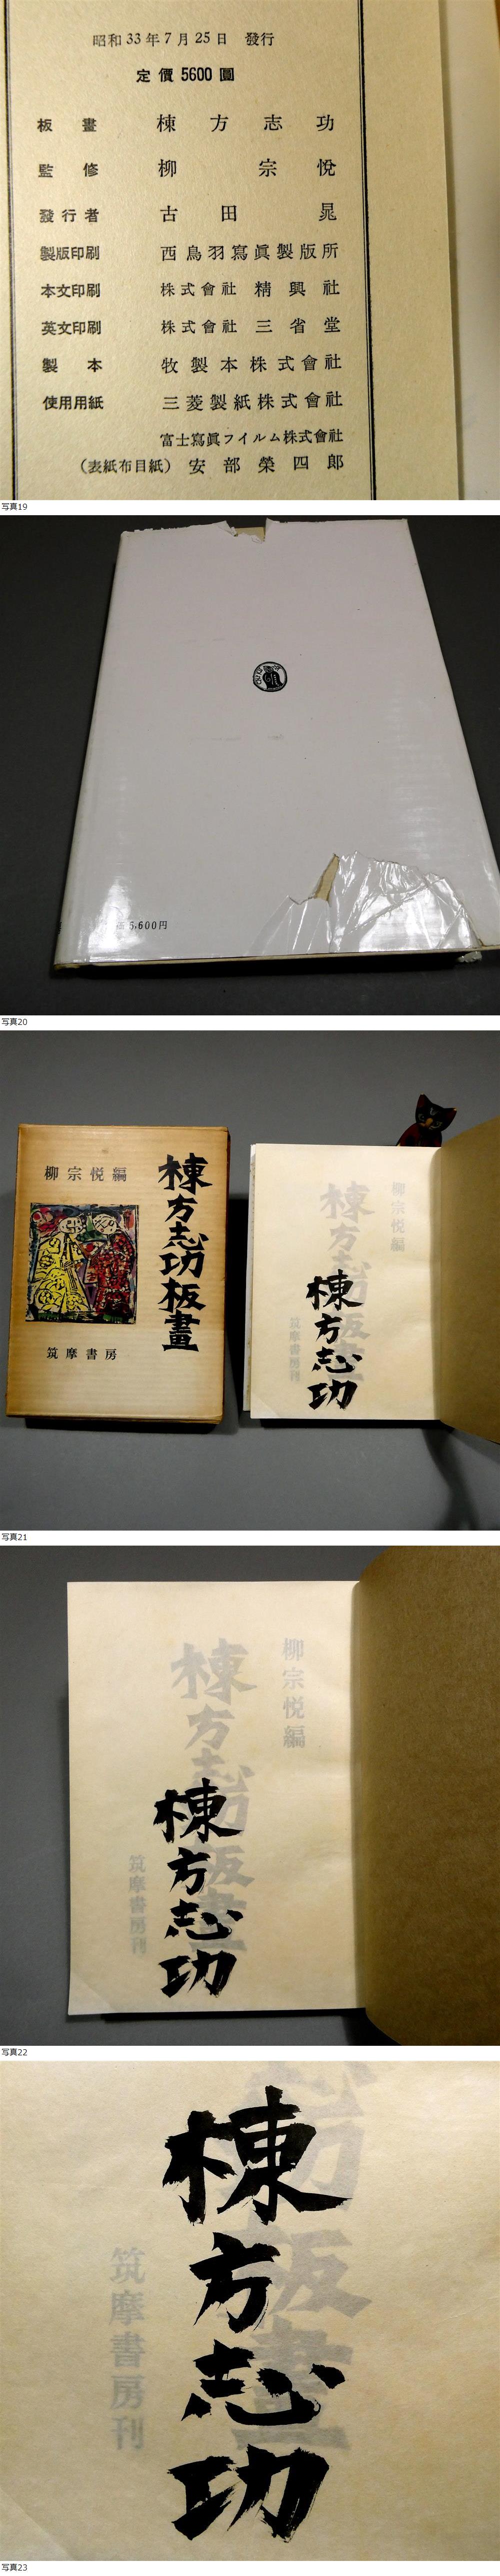 昭和33年7月25日　發行
定價 5600 圓
板畫　棟方志功
監修　柳宗悅
發行者　古田晁
製版印刷　西鳥羽寫眞製版所
本文印刷　株式會社 精興社
英文印刷　株式會社 三省堂
製本　牧製本株式會社
使用用紙　三菱製紙株式會社
富士寫眞フイルム株式會社
（表紙布目紙）　安部榮四郎
写真19
5,600円
写真20
柳宗悦編
棟方志功板畫
筑摩書房
柳宗悦編
棟方志功板畫
棟方志功
筑摩書房刊
写真21
柳宗悦編
棟方志功板畫
棟方志功
筑摩書房刊
写真22
功板畫
棟方志功
筑摩書房刊
写真23